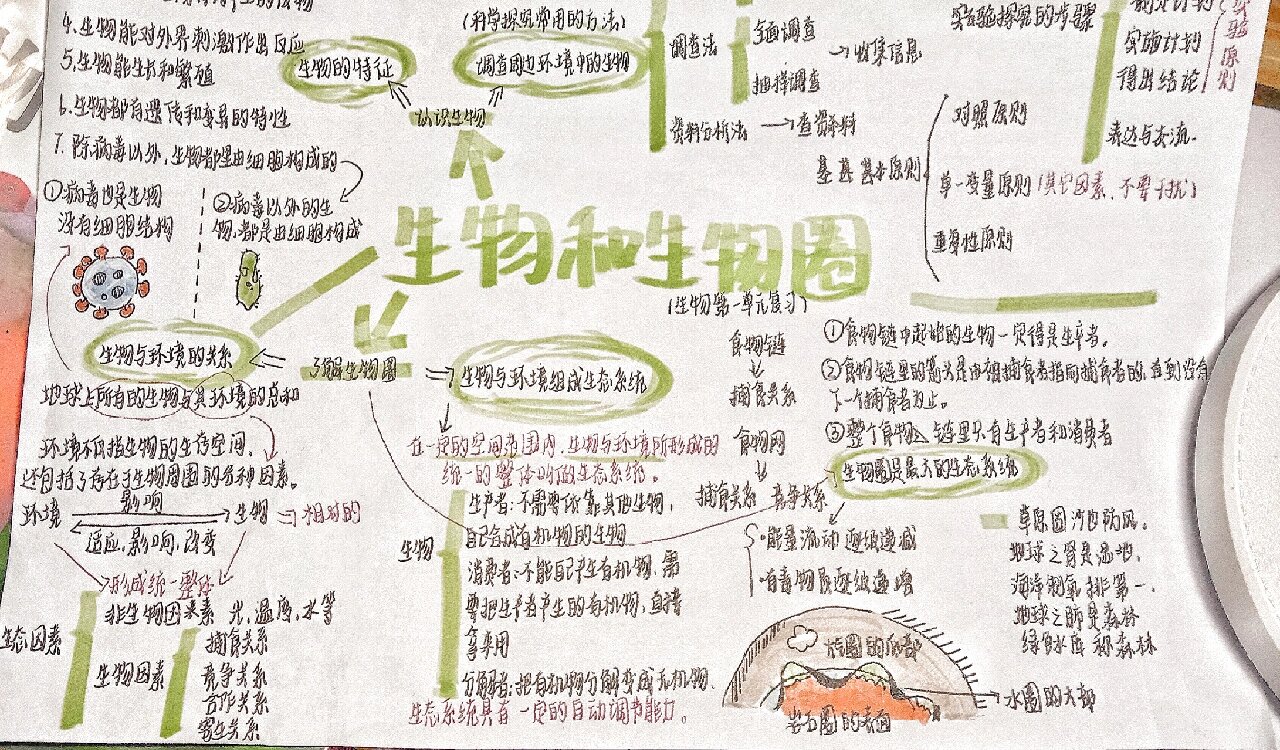 4.生物能对外界刺激作出反应
5.生物能生长和繁殖
6.生物都有遗传和变异的特性
7.除病毒以外,生物都是由细胞构成的
①病毒也是生物
没有细胞结构
②病毒以外的生
物,都是由细胞构成
生物的特征
(科学探究常用的方法)
调查周边环境中的生物
认识生物
调查法
全面调查
抽样调查
→收集信息
资料分析法
→查资料
实验探究的步骤
制定计划
实施计划
得出结论
表达与交流.
实验原则
基本原则
对照原则
单一变量原则(其它因素,不要干扰)
重复性原则
生物和生物圈
(生物第一单元复习)
生物与环境的关系
了解生物圈
生物与环境组成生态系统
地球上所有的生物与其环境的总和
环境不仅指生物的生存空间
还包括了存在于生物周围的各种因素。
环境
影响
适应,影响,改变
生物
相对的
形成统一整体
生态因素
非生物因素
光,温度,水等
生物因素
捕食关系
竞争关系
合作关系
寄生关系
在一定的空间范围内,生物与环境所形成的
统一的整体叫的生态系统。
生物
生产者:不需要依靠其他生物,
自己合成有机物的生物
消费者:不能自己产生有机物,需
要把生产者产生的有机物,直接
拿来用
分解者:把有机物分解变成无机物.
生态系统具有一定的自动调节能力。
食物链
捕食关系
食物网
捕食关系 竞争关系
①食物链中起始的生物一定得是生产者。
②食物链里的箭头是由被捕食者指向捕食者的,直到没有
下一个捕食者为止。
③整个食物链里只有生产者和消费者
生物圈是最大的生态系统
·能量流动 逐级递减
·有毒物质逐级递增
草原固沙也防风。
地球之肾是湿地.
海洋制氧排第一.
地球之肺是森林
绿色水库称森林
气圈的底部
水圈的大部
岩石圈的表面